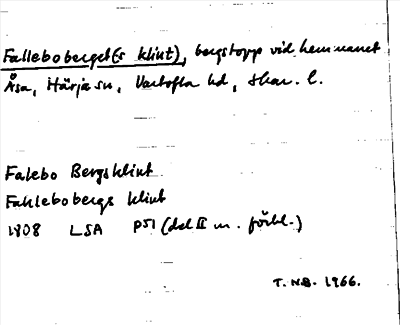 Falleboberget(s klint), bergstopp vid hemmanet
Åsa, Härja sn, Vartofta hd, Skar. l.
Falebo Bergsklint
Fahlebobergs klint
1808 LSA P51 (del II m. förbl.)
T. NB. 1966.